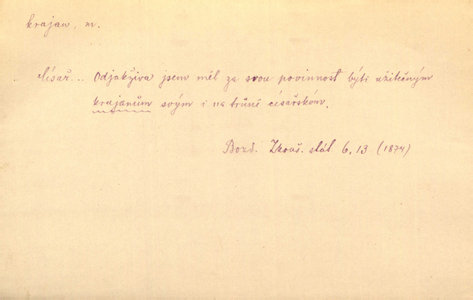 krajan, m.
Císař .. Odjakživa jsem měl za svou povinnost býti užitečným
krajanům svým i na trůně císařském.
Bozd. Zkouš. stát. 6, 13 (1874)